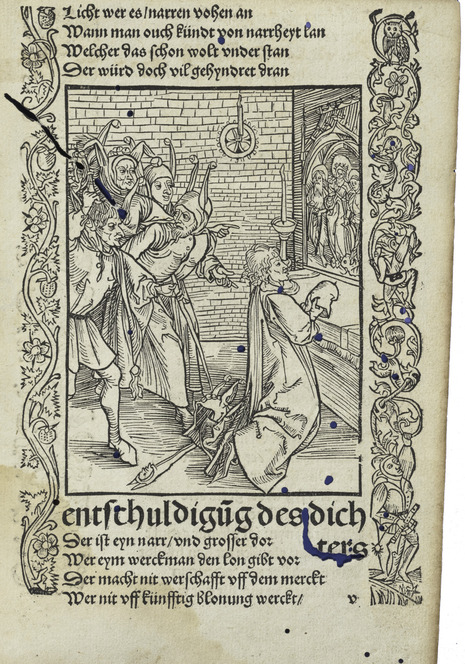 Licht wer es/narren vohen an
Wann man ouch kündt von narrheyt lan
Welcher das schon wolt vnder stan
Der würd doch vil gehyndret dran
entschuldigūg des dich
ters
Der ist eyn narr/vnd grosser dor
Wer eym werckman den lon gibt vor
Der macht nit werschafft vff dem merckt
Wer nit vff künfftig blonung werckt/
v